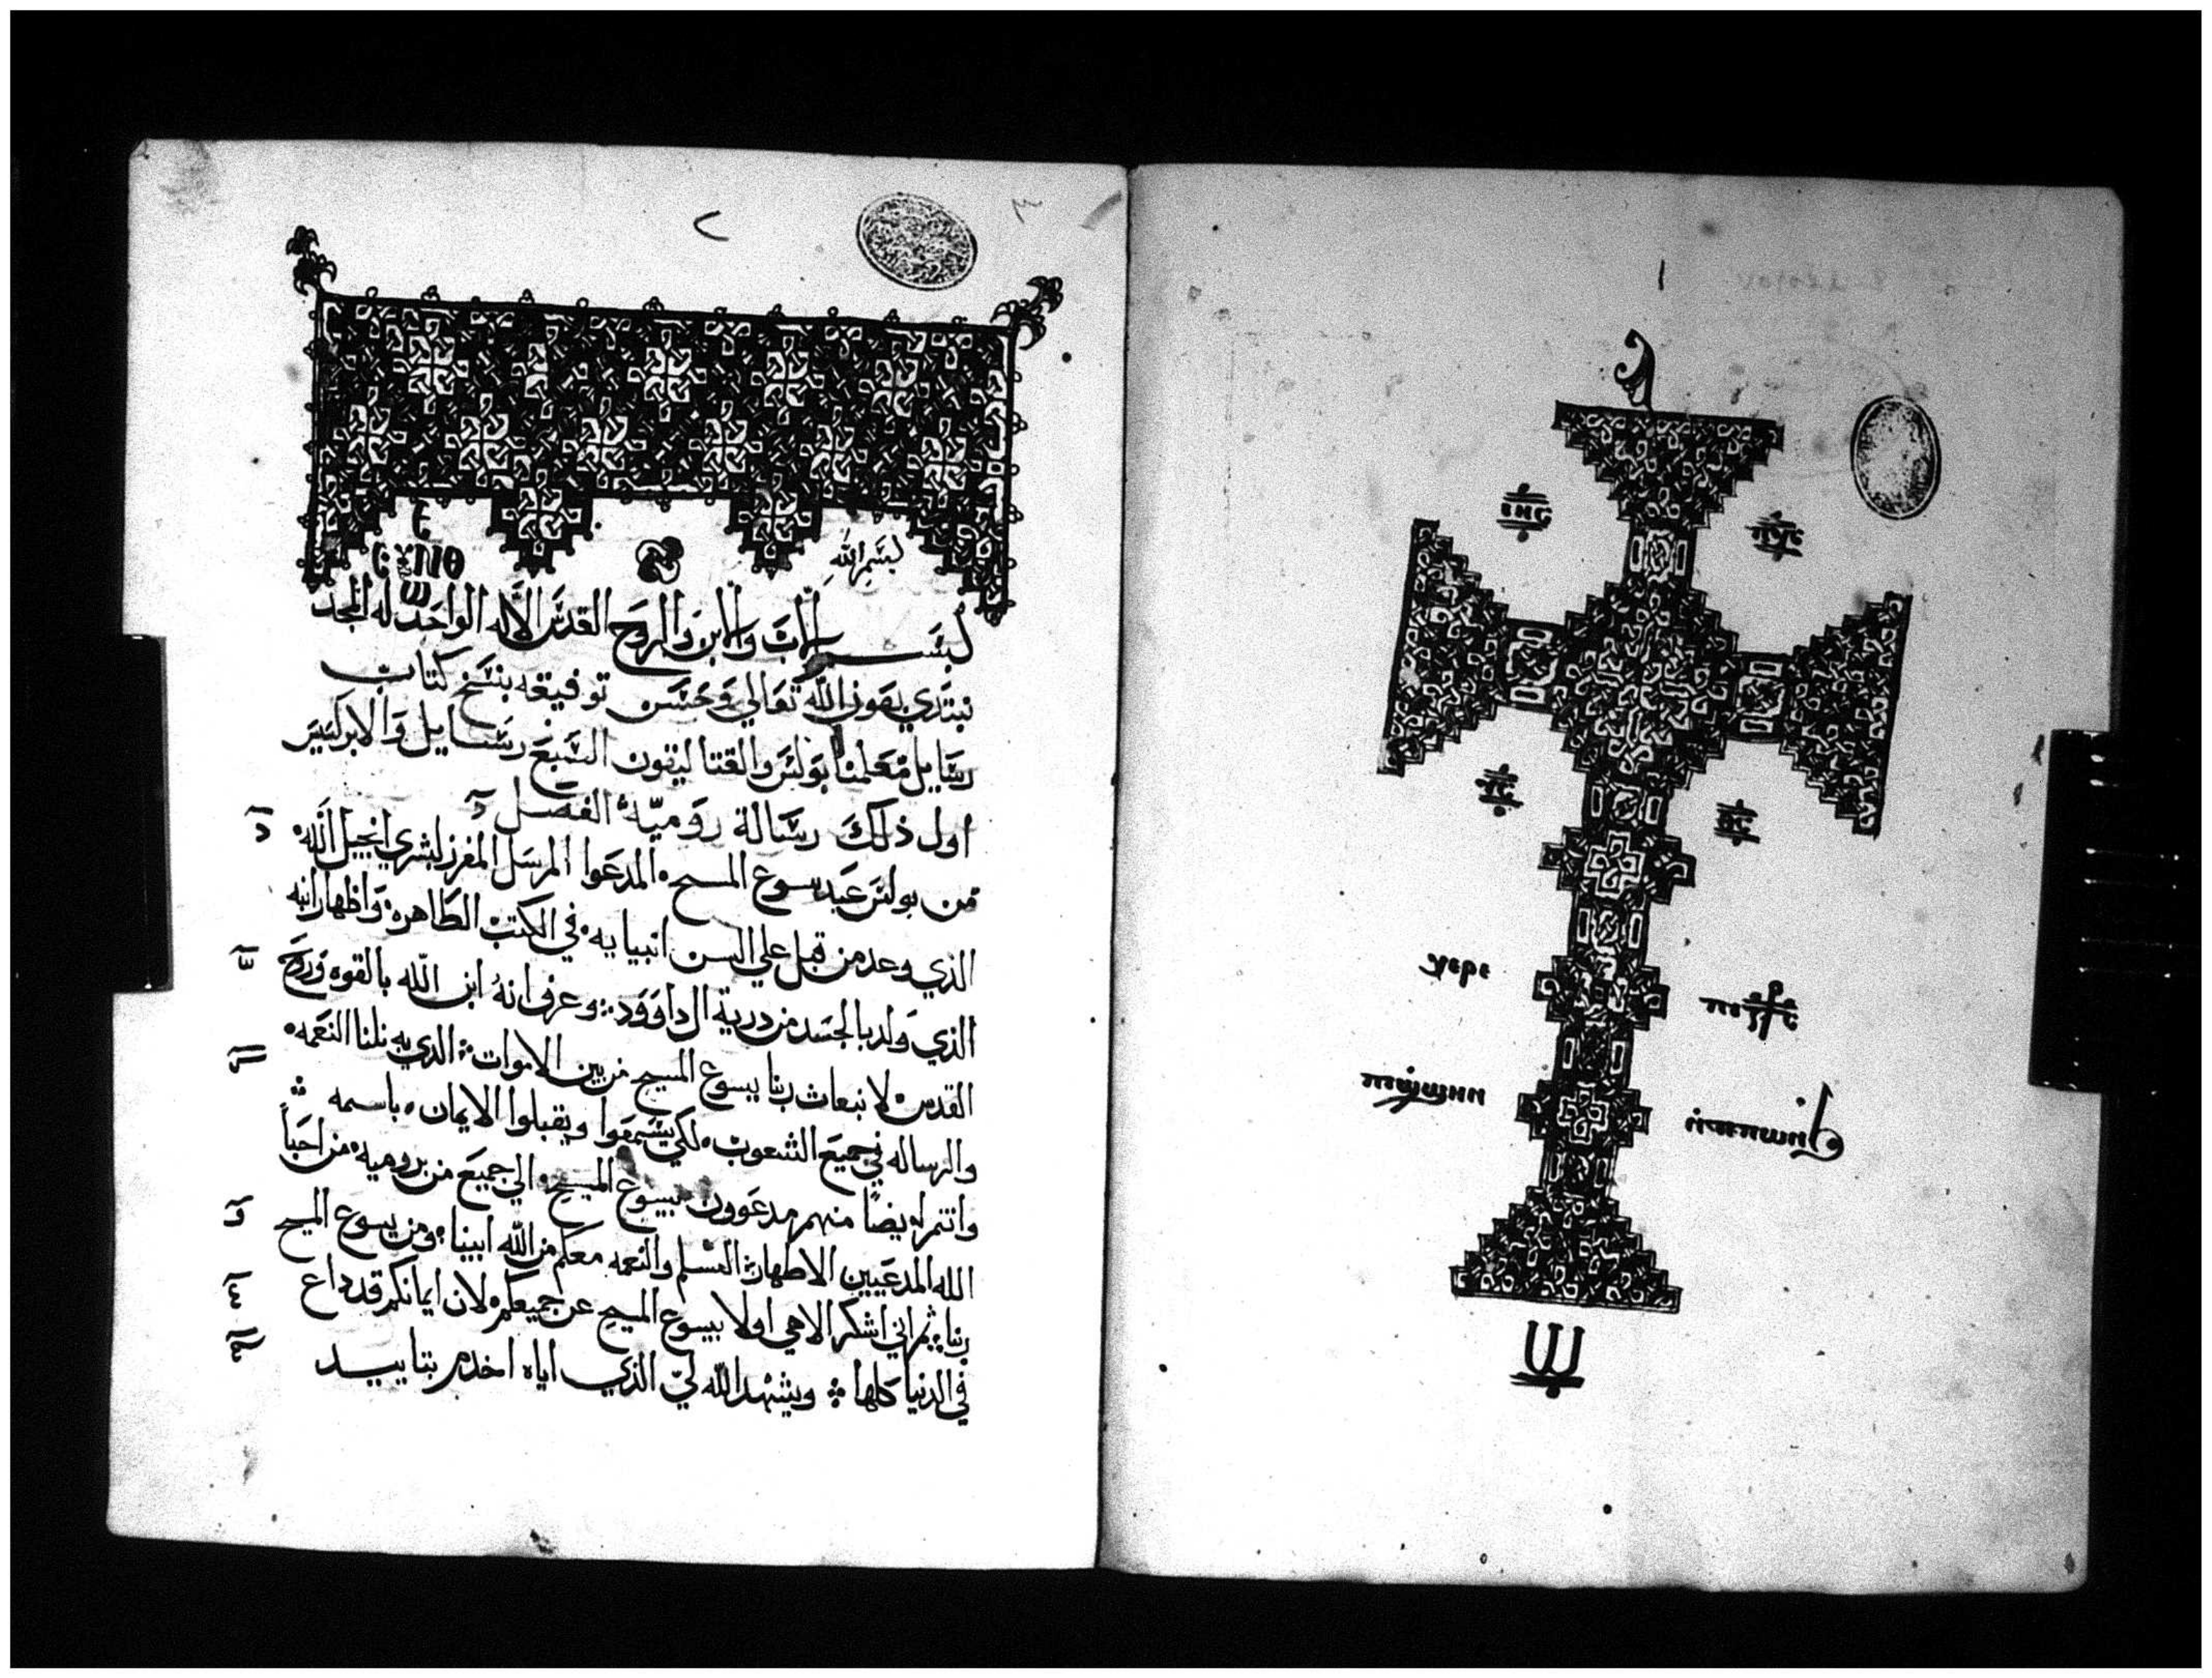 ⲓⲏⲥ
ⲭⲣⲥ
ⲩⲥ
ⲑⲥ
ⲭⲉⲣⲉ
بسم الله
بسم الاب والابن والروح القدس الاله الواحد له المجد
نبتدي بعون الله تعالي وحسن توفيقه بنسخ كتاب
رسايل معلمنا بولس والقتاليقون السبع رسايل والابركسيس
اول ذلك رسالة رومية الفصل
من بولس عبد يسوع المسيح المدعوا المرسل المفرز لبشري انجيل الله
الذي وعد من قبل علي السن انبيايه في الكتب الطاهره واظهار ابنه
الذي ولد بالجسد من درية ال داوود وعرف انه ابن الله بالقوه وروح
القدس لانبعاث ربنا يسوع المسيح من بين الاموات الدي به نلنا النعمه
والرساله في جميع الشعوب لكي يسمعوا ويقبلوا الايمان باسمه
وانتم ايضا منهم مدعوون بيسوع المسيح الي جميع من بروميه من احبا
الله المدعيين الاطهار السلم والنعمه معكم من الله ابينا ومن يسوع المسيح
ربنا ثم اني اشكر الاهي اولا بيسوع المسيح عن جميعكم لان ايمانكم قد داع
في الدنيا كلها ويشهد الله لي الذي اياه اخدم بتاييد